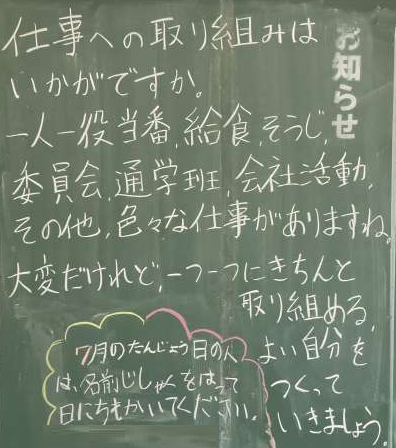 お知らせ
仕事への取り組みは
いかがですか。
一人一役当番,給食,そうじ,
委員会,通学班,会社活動,
その他,色々な仕事がありますね。
大変だけれど,一つ一つにきちんと
取り組める,
よい自分を
つくって
いきましょう。
7月のたんじょう日の人
は、名前じしゃくをはって
日にちをかいてください。